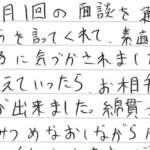 月1回の面談を通
うを言ってくれて、素直
るに気づかされまし
えていったら、お相手
が出来ました。綿貫
みつめなおしながら